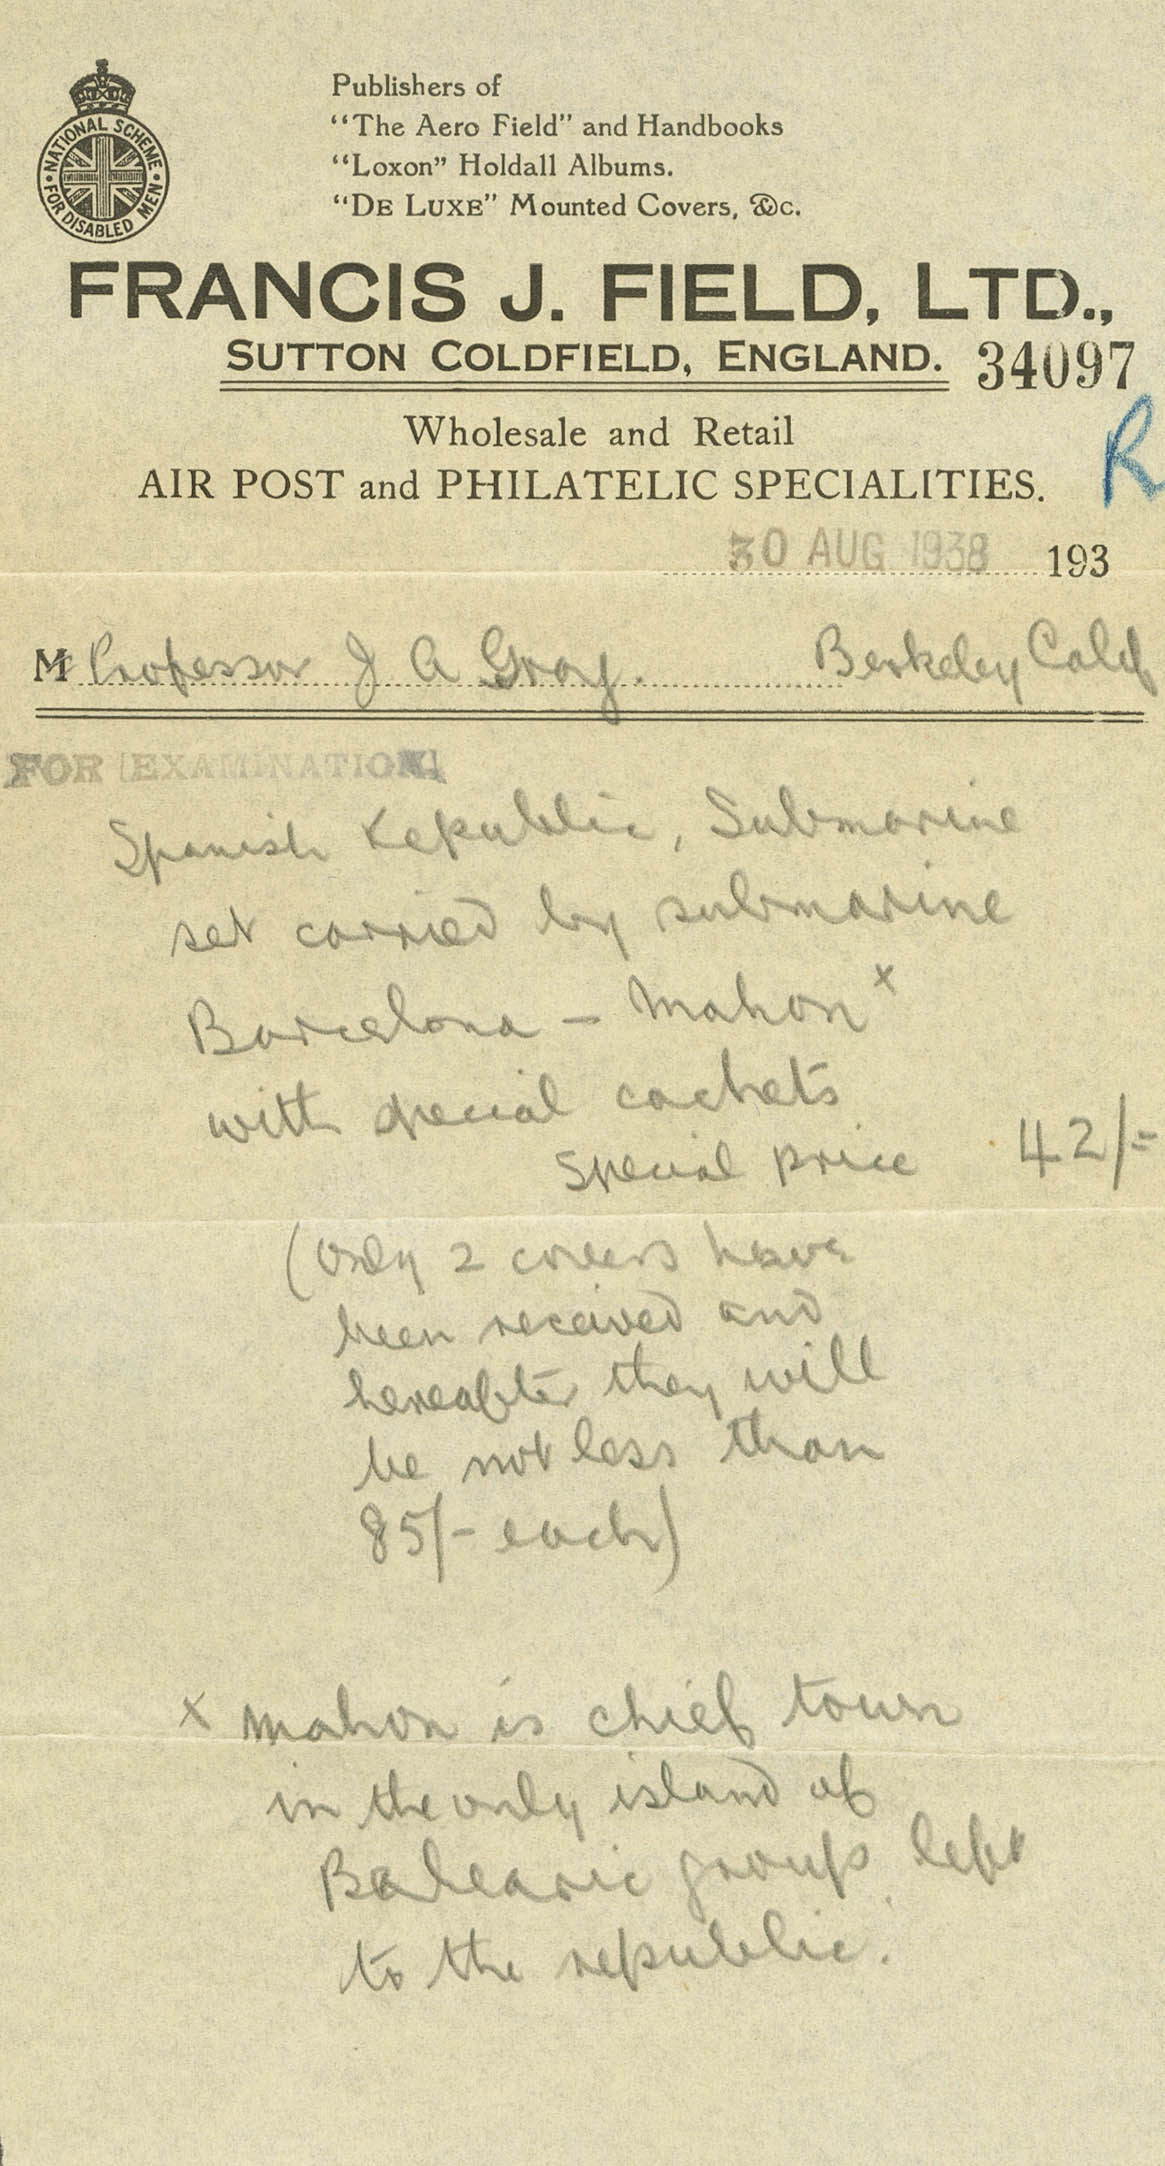 NATIONAL SCHEME
FOR DISABLED MEN
Publishers of
"The Aero Field" and Handbooks
"Loxon" Holdall Albums.
"De Luxe" Mounted Covers, &c.
FRANCIS J. FIELD, LTD.,
SUTTON COLDFIELD, ENGLAND. 34097
Wholesale and Retail
R
AIR POST and PHILATELIC SPECIALITIES.
30 AUG 1938 193
M Professor J A Gray. Berkeley Calif
FOR EXAMINATION
Spanish Republic, Submarine
set carried by submarine
Barcelona – Mahon x
with special cachets
Special price 42/=
(Only 2 covers have
been received and
hereafter they will
be not less than
85/- each)
x Mahon is chief town
in the only island of
Balearic group left
to the republic.